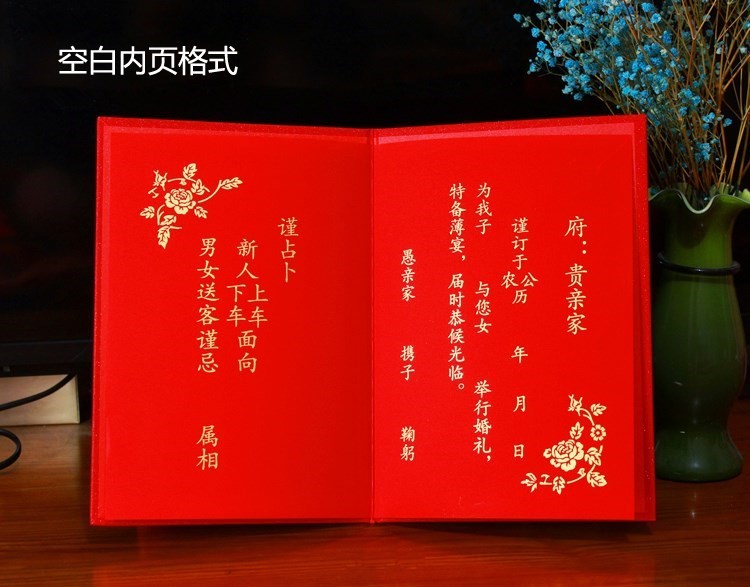 空白内页格式
府：贵亲家
谨订于公历 年 月 日
农
为我子 与您女 举行婚礼，
特备薄宴，届时恭候光临。
愚亲家 携子 鞠躬
谨占卜
新人上车面向
下车
男女送客谨忌 属相